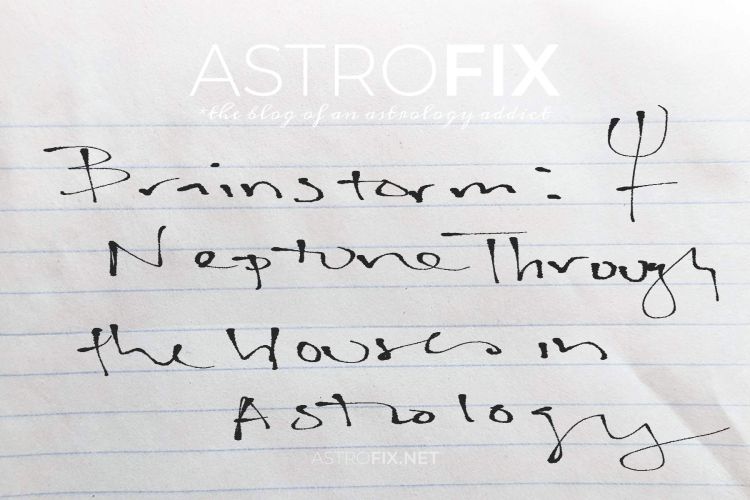 ASTROFIX
*the blog of an astrology addict
Brainstorm: ♆
Neptune Through
the Houses in
Astrology
ASTROFIX.NET